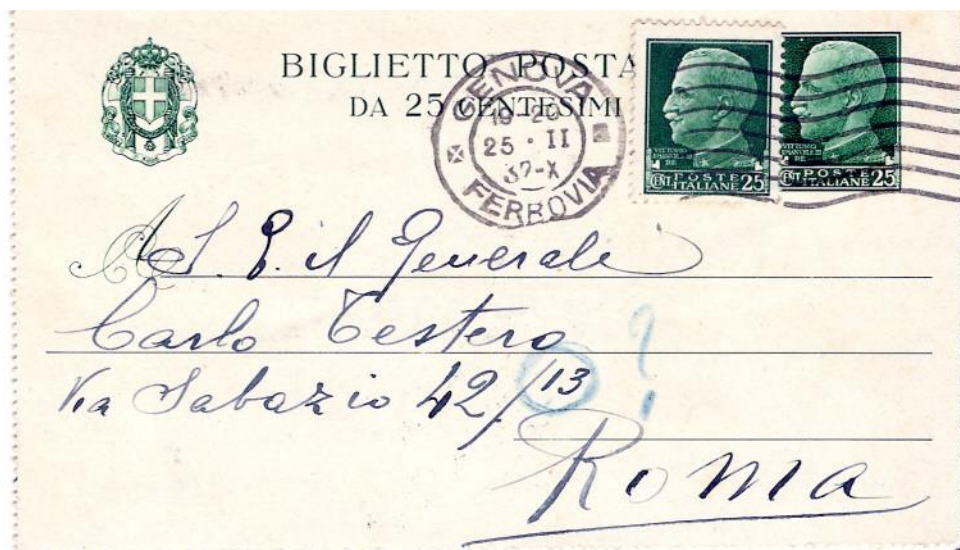 BIGLIETTO POSTA
DA 25 CENTESIMI
GENOVA
19-20
25·II
32-X
FERROVIA
VITTORIO
EMANUELE III
RE
CENT POSTE
ITALIANE 25
VITTORIO
EMANUELE III
RE
CENT POSTE
ITALIANE 25
A S. E. il Generale
Carlo Testero
Via Sabazio 42/13
?
Roma